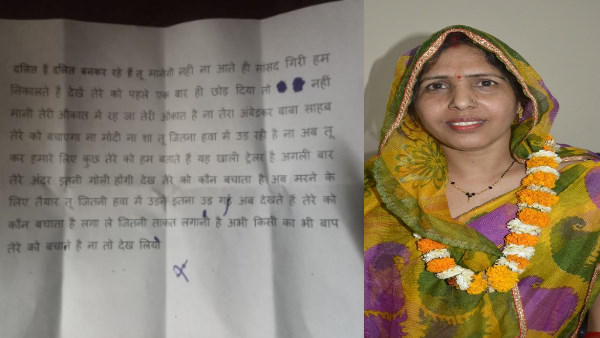 दलित है दलित बनकर रहे हैं तू मानेगी नही ना आते ही सांसद गिरी हम
निकालते हैं देखे तेरे को पहले एक बार ही छोड दिया तो नहीं
मानी तेरी औकात में रह जा तेरी औकात है ना तेरा अंबेडकर बाबा साहब
तेरे को बचाएगा ना मोदी ना शा तू जितना हवा में उड रही है ना अब तू
कर हमारे लिए कुछ तेरे को हम बताते हैं यह खाली ट्रेलर है अगली बार
तेरे अंदर इतनी गोली होगी देख तेरे को कौन बचाता है अब मरने के
लिए तैयार तू जितनी हवा में उडने इतना उड गई अब देखते हैं तेरे को
कौन बचाता है लगा ले जितनी ताकत लगानी है अभी किसी का भी बाप
तेरे को बचाने है ना तो देख लियो